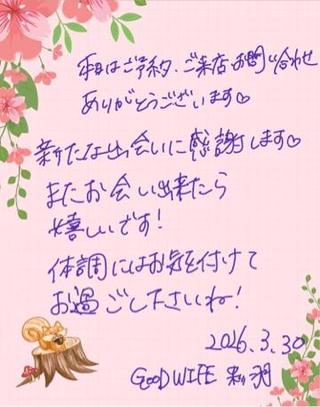 本日はご予約、ご来店、お問い合わせ
ありがとうございます♡
新たな出会いに感謝します♡
またお会い出来たら
嬉しいです!
体調にはお気を付けて
お過ごし下さいね!
2026.3.30
GOOD WIFE